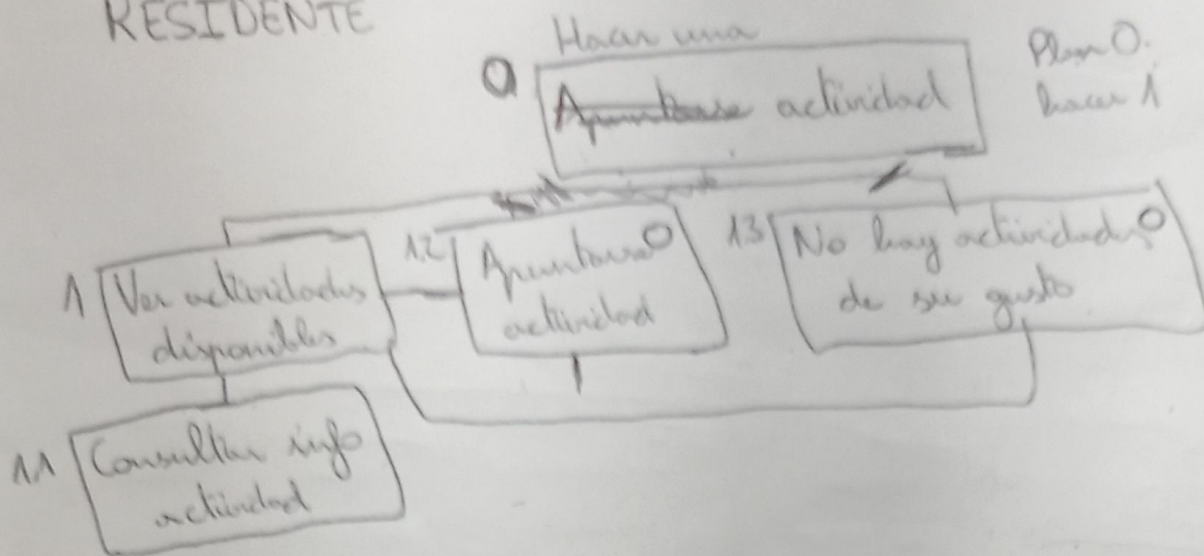 RESIDENTE
Hacer una
0
Apuntarse actividad
Plan 0.
hacer 1
1
Ver actividades
disponibles
1.2
Apuntarse O
actividad
1.3
No hay actividades O
de su gusto
1.1
Consultar info
actividad